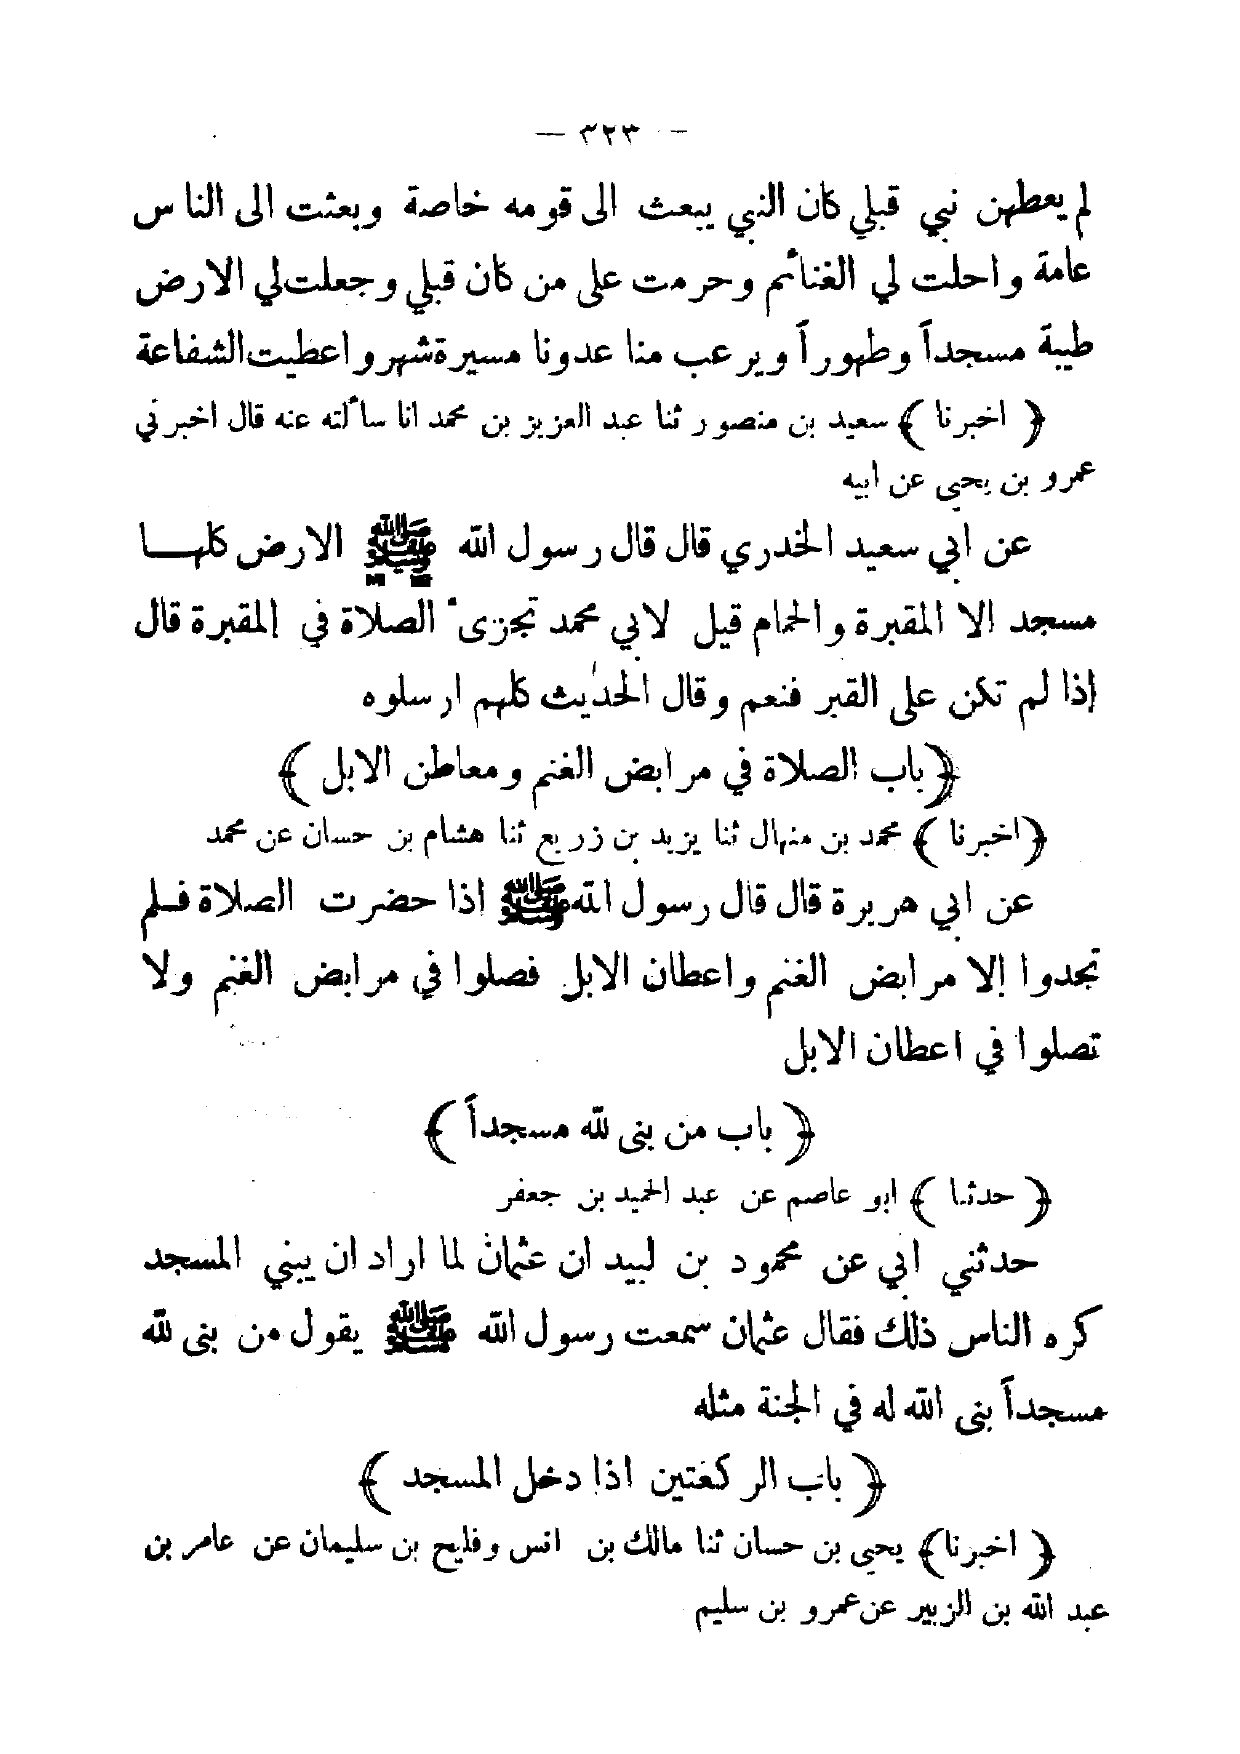 — ٣٢٣ —
لم يعطهن نبي قبلي كان النبي يبعث الى قومه خاصة وبعثت الى الناس
عامة واحلت لي الغنائم وحرمت على من كان قبلي وجعلت لي الارض
طيبة مسجداً وطهوراً ويرعب منا عدونا مسيرة شهر واعطيت الشفاعة
﴿ اخبرنا ﴾ سعيد بن منصور ثنا عبد العزيز بن محمد انا سألته عنه قال اخبرني
عمرو بن يحيى عن ابيه
عن ابي سعيد الخدري قال قال رسول الله ﷺ الارض كلهـــا
مسجد الا المقبرة والحمام قيل لابي محمد تجزىء الصلاة في المقبرة قال
إذا لم تكن على القبر فنعم وقال الحديث كلهم ارسلوه
﴿باب الصلاة في مرابض الغنم ومعاطن الابل ﴾
﴿اخبرنا ﴾ محمد بن منهال ثنا يزيد بن زريع ثنا هشام بن حسان عن محمد
عن ابي هريرة قال قال رسول الله ﷺ اذا حضرت الصلاة فــلم
تجدوا إلا مرابض الغنم واعطان الابل فصلوا في مرابض الغنم ولا
تصلوا في اعطان الابل
﴿ باب من بنى لله مسجداً ﴾
﴿ حدثنا ﴾ ابو عاصم عن عبد الحميد بن جعفر
حدثني ابي عن محمود بن لبيد ان عثمان لما اراد ان يبني المسجد
كره الناس ذلك فقال عثمان سمعت رسول الله ﷺ يقول من بنى لله
مسجداً بنى الله له في الجنة مثله
﴿ باب الركعتين اذا دخل المسجد ﴾
﴿ اخبرنا﴾ يحيى بن حسان ثنا مالك بن انس وفليح بن سليمان عن عامر بن
عبد الله بن الزبير عن عمرو بن سليم